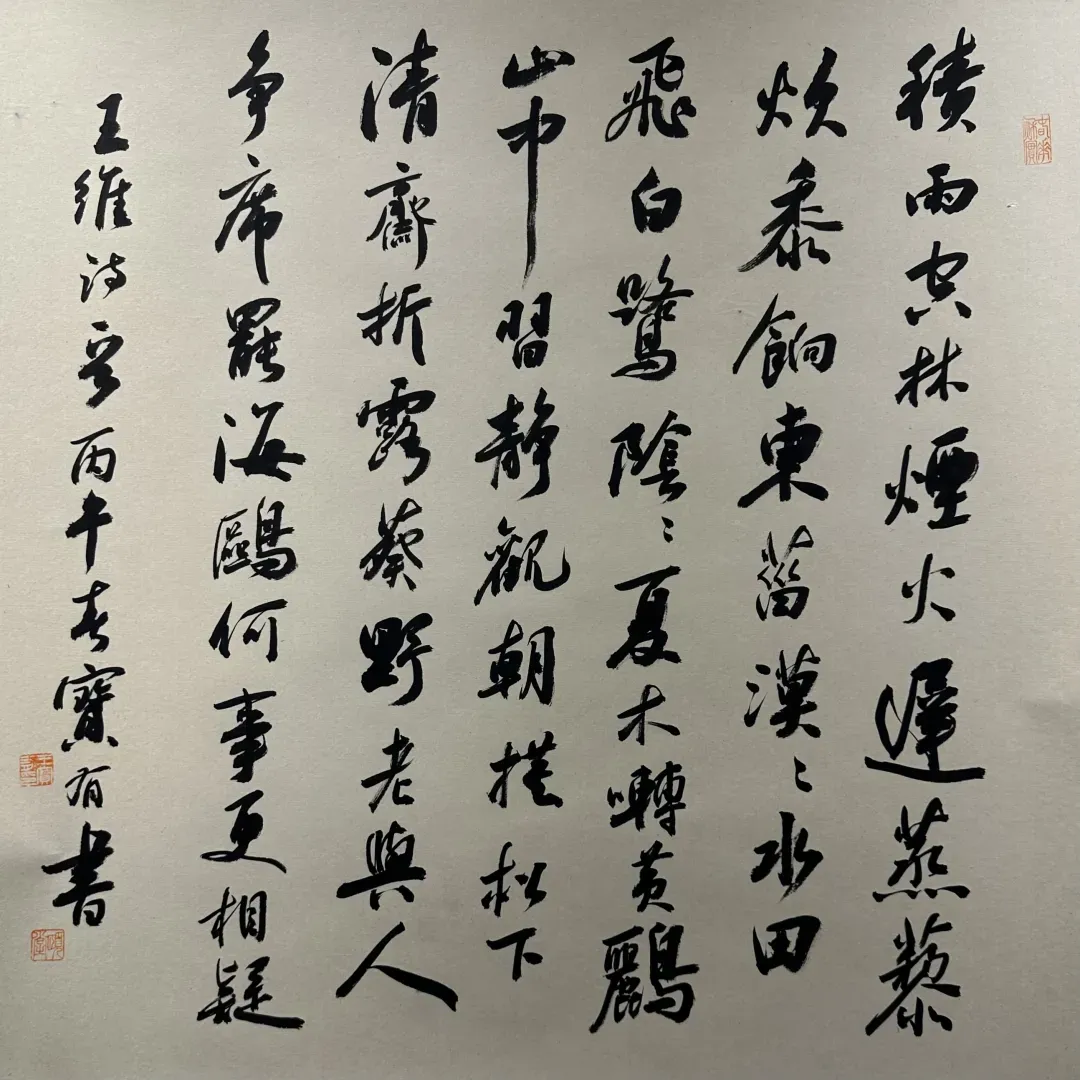 積雨空林煙火遲蒸藜
炊黍餉東菑漠〻水田
飛白鷺陰〻夏木囀黃鸝
山中習靜觀朝槿松下
清齋折露葵野老與人
争席罷海鷗何事更相疑
王維诗 丙午春寶有書